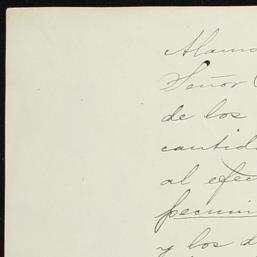 Alamo
Señor
de los
cantid
al efec
pecuni
y los d